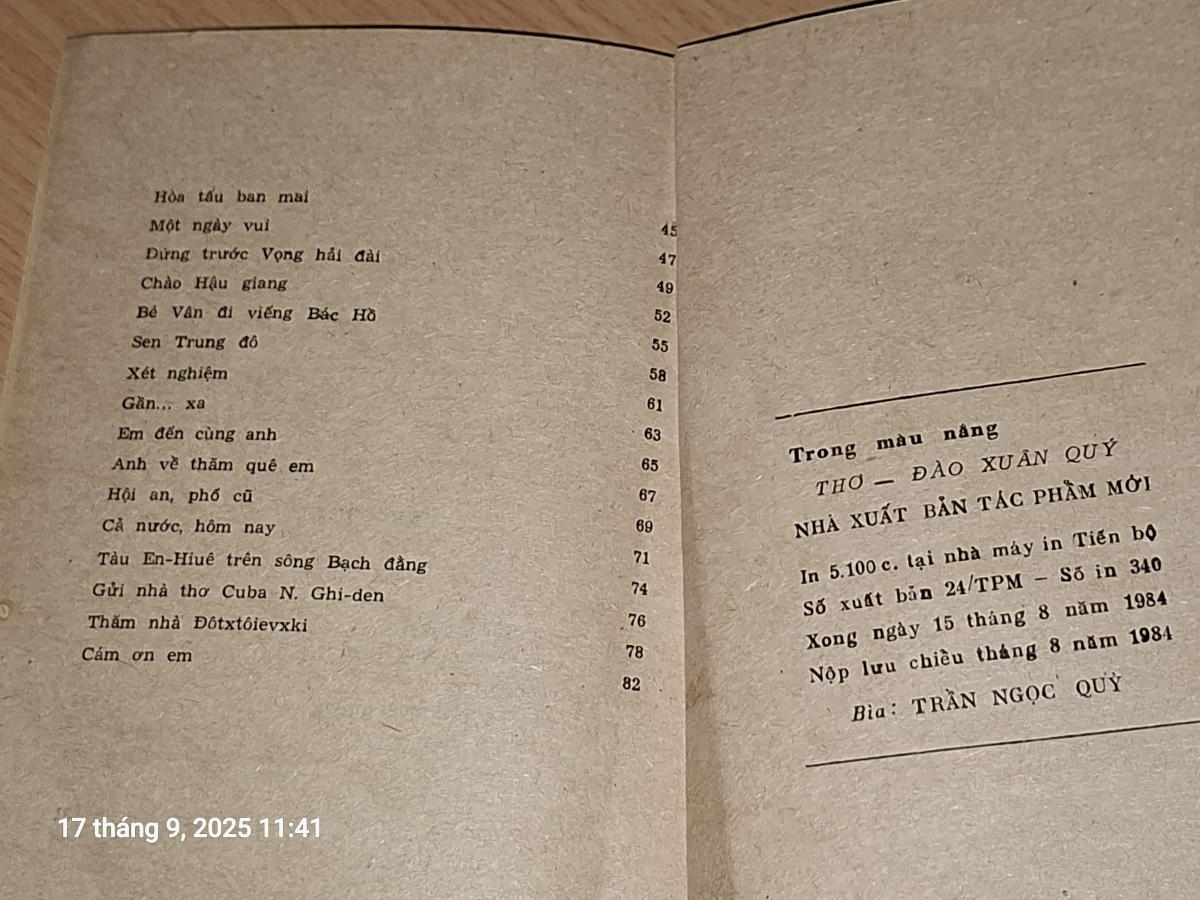 Hòa tấu ban mai 45
Một ngày vui 47
Đứng trước Vọng hải đài 49
Chào Hậu giang 52
Bé Vân đi viếng Bác Hồ 55
Sen Trung đô 58
Xét nghiệm 61
Gần... xa 63
Em đến cùng anh 65
Anh về thăm quê em 67
Hội an, phố cũ 69
Cả nước, hôm nay 71
Tàu En-Hiuê trên sông Bạch đằng 74
Gửi nhà thơ Cuba N. Ghi-den 76
Thăm nhà Đôtxtôievxki 78
Cám ơn em 82
Trong màu nắng
THƠ — ĐÀO XUÂN QUÝ
NHÀ XUẤT BẢN TÁC PHẨM MỚI
In 5.100 c. tại nhà máy in Tiến bộ
Số xuất bản 24/TPM – Số in 340
Xong ngày 15 tháng 8 năm 1984
Nộp lưu chiều tháng 8 năm 1984
Bìa: TRẦN NGỌC QUỲ
17 tháng 9, 2025 11:41